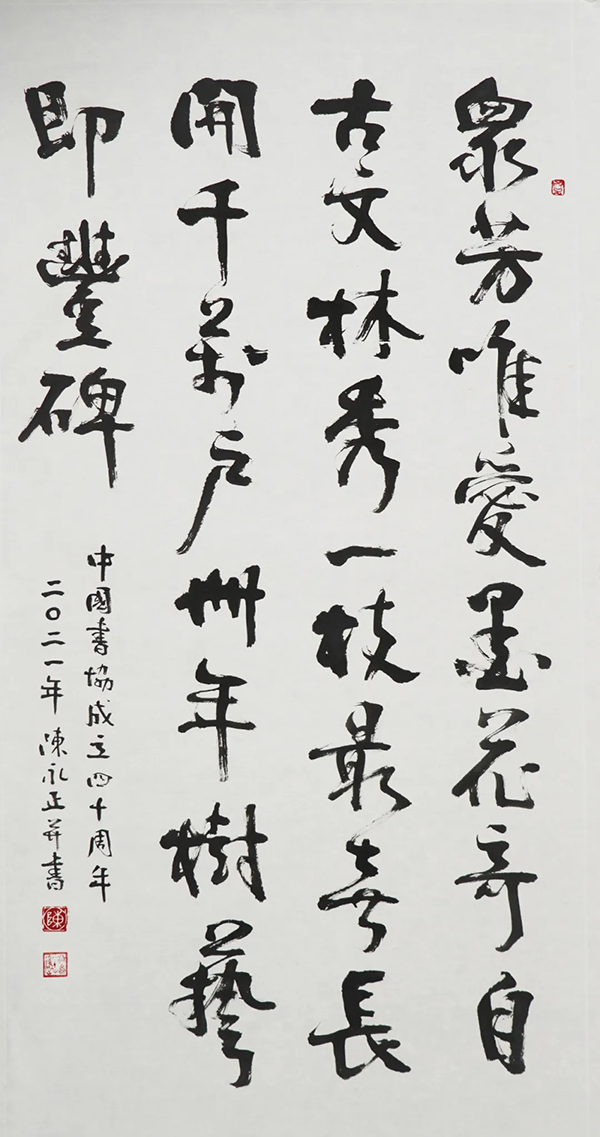 眾芳唯愛墨花奇自
古文林秀一枝最喜長
開千萬戶卌年樹藝
即豐碑
中國書協成立四十周年
二〇二一年陳永正并書
陳